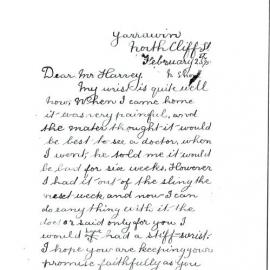 Yarrawin
North Cliff St
February 25th
N. Shore
Dear Mr Harvey.
My wrist is quite well
now, When I came home
it was very painful, and
the mater thought it would
be best to see a doctor, when
I went, he told me it would
be bad for six weeks. However
I had it out of the sling the
next week, and now I can
do anything with it the
doctor said only for you I
would have had a stiff wrist.
I hope you are keeping your
promise faithfully as you